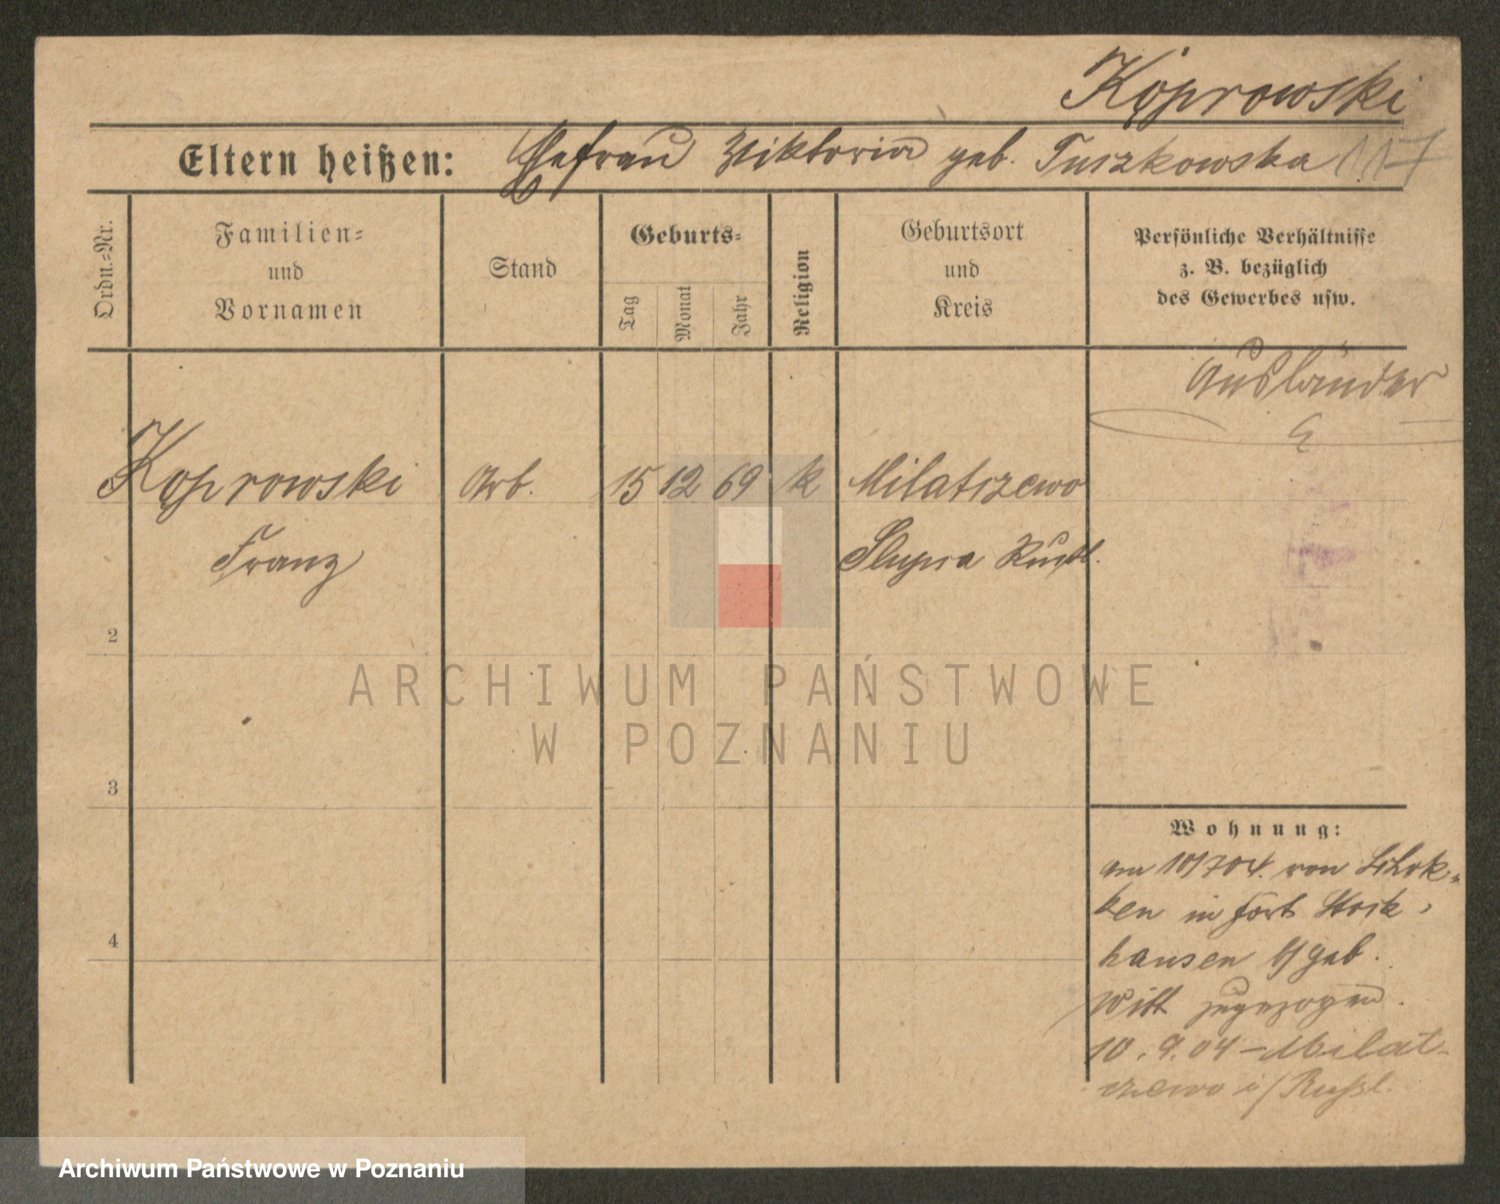 Koprowski
Eltern heißen: Ehefrau Viktoria geb. Tuszkowska 117
Ordn.-Nr.
Familien-
und
Vornamen
Stand
Geburts-
Tag
Monat
Jahr
Religion
Geburtsort
und
Kreis
Persönliche Verhältnisse
z. B. bezüglich
des Gewerbes usw.
Ausländer
Koprowski Arb. 15 12 69 k Milatszewo
Franz Slupca Rußl.
2
3
4
Wohnung:
am 10/7 04. von Schok-
ken in Fort Stock-
hausen b/ Geb.
Witt zugezogen.
10. 9. 04 – Milat-
szewo i/ Rußl.
ARCHIWUM PAŃSTWOWE
W POZNANIU
Archiwum Państwowe w Poznaniu